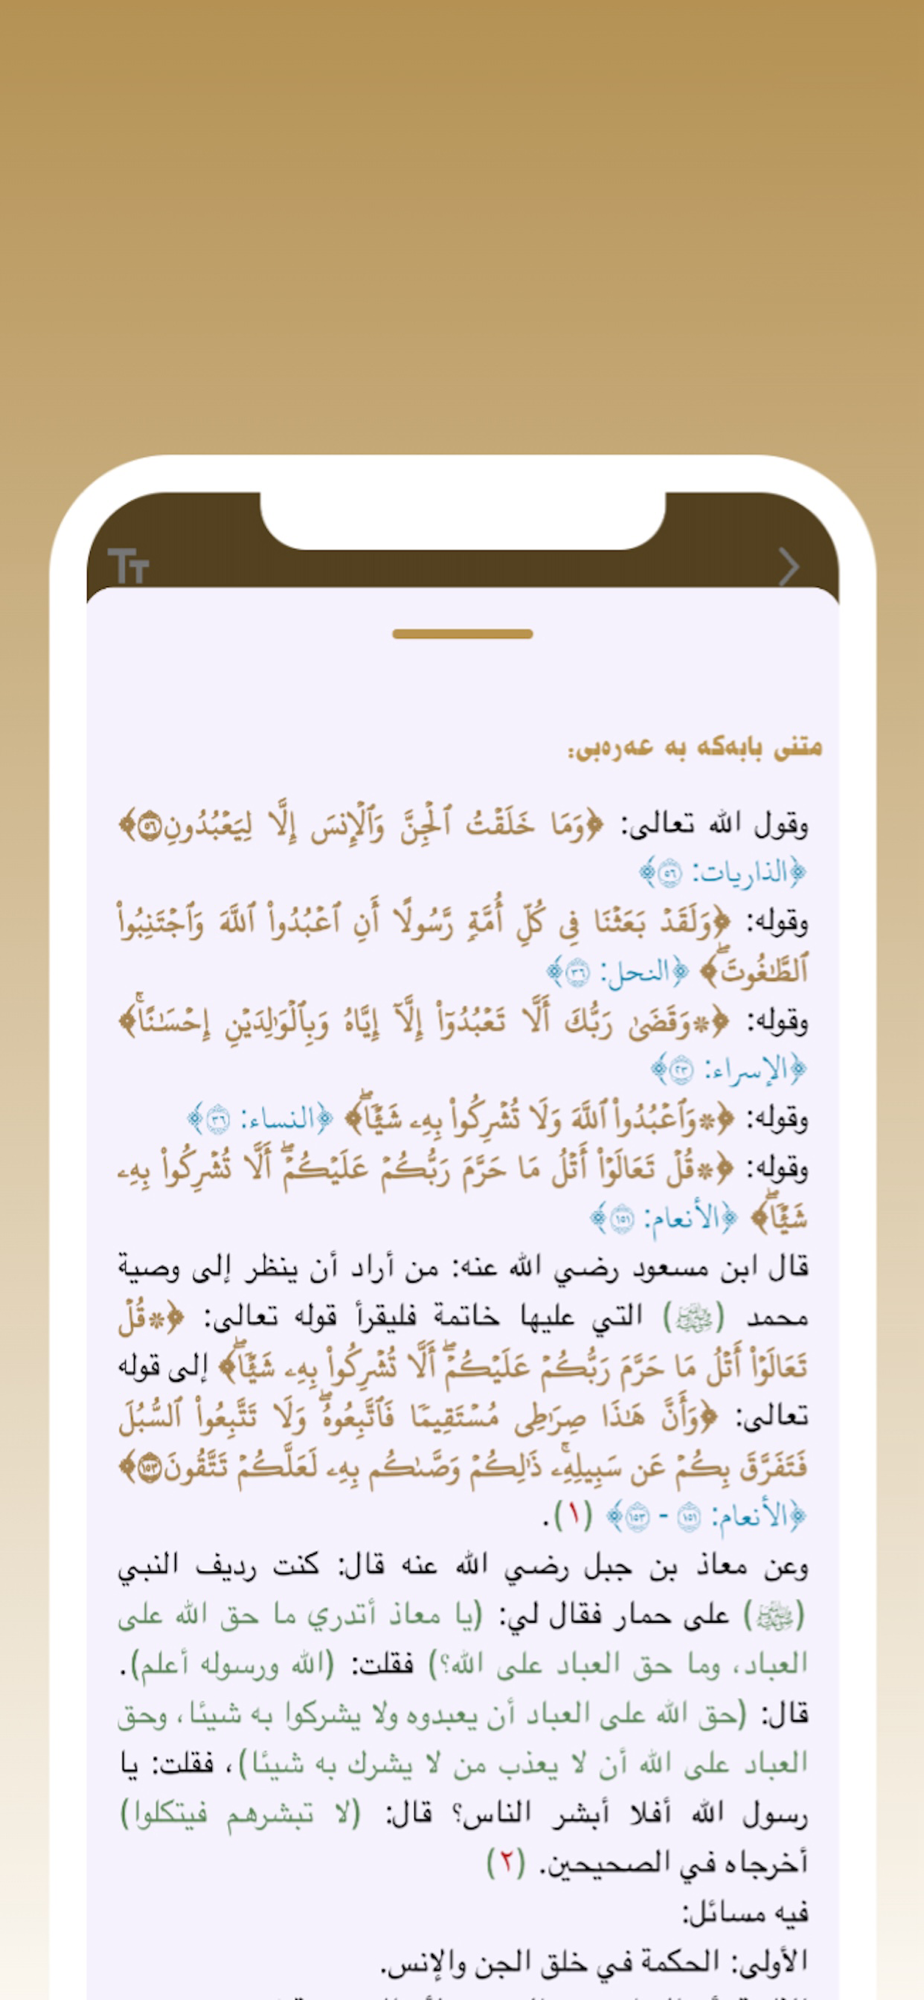 TT
متنی بابەکە بە عەرەبی:
وقول الله تعالى: ﴿وَمَا خَلَقۡتُ ٱلۡجِنَّ وَٱلۡإِنسَ إِلَّا لِيَعۡبُدُونِ٥٦﴾
﴿الذاريات: ٥٦﴾
وقوله: ﴿وَلَقَدۡ بَعَثۡنَا فِي كُلِّ أُمَّةٖ رَّسُولًا أَنِ ٱعۡبُدُواْ ٱللَّهَ وَٱجۡتَنِبُواْ
ٱلطَّٰغُوتَۖ﴾ ﴿النحل: ٣٦﴾
وقوله: ﴿*وَقَضَىٰ رَبُّكَ أَلَّا تَعۡبُدُوٓاْ إِلَّآ إِيَّاهُ وَبِٱلۡوَٰلِدَيۡنِ إِحۡسَٰنًاۚ﴾
﴿الإسراء: ٢٣﴾
وقوله: ﴿*وَٱعۡبُدُواْ ٱللَّهَ وَلَا تُشۡرِكُواْ بِهِۦ شَيۡـٔٗاۖ﴾ ﴿النساء: ٣٦﴾
وقوله: ﴿*قُلۡ تَعَالَوۡاْ أَتۡلُ مَا حَرَّمَ رَبُّكُمۡ عَلَيۡكُمۡۖ أَلَّا تُشۡرِكُواْ بِهِۦ
شَيۡـٔٗاۖ﴾ ﴿الأنعام: ١٥١﴾
قال ابن مسعود رضي الله عنه: من أراد أن ينظر إلى وصية
محمد (ﷺ) التي عليها خاتمة فليقرأ قوله تعالى: ﴿*قُلۡ
تَعَالَوۡاْ أَتۡلُ مَا حَرَّمَ رَبُّكُمۡ عَلَيۡكُمۡۖ أَلَّا تُشۡرِكُواْ بِهِۦ شَيۡـٔٗاۖ﴾ إلى قوله
تعالى: ﴿وَأَنَّ هَٰذَا صِرَٰطِي مُسۡتَقِيمٗا فَٱتَّبِعُوهُۖ وَلَا تَتَّبِعُواْ ٱلسُّبُلَ
فَتَفَرَّقَ بِكُمۡ عَن سَبِيلِهِۦۚ ذَٰلِكُمۡ وَصَّىٰكُم بِهِۦ لَعَلَّكُمۡ تَتَّقُونَ١٥٣﴾
﴿الأنعام: ١٥١ - ١٥٣﴾ (١).
وعن معاذ بن جبل رضي الله عنه قال: كنت رديف النبي
(ﷺ) على حمار فقال لي: (يا معاذ أتدري ما حق الله على
العباد، وما حق العباد على الله؟) فقلت: (الله ورسوله أعلم).
قال: (حق الله على العباد أن يعبدوه ولا يشركوا به شيئا، وحق
العباد على الله أن لا يعذب من لا يشرك به شيئا)، فقلت: يا
رسول الله أفلا أبشر الناس؟ قال: (لا تبشرهم فيتكلوا)
أخرجاه في الصحيحين. (٢)
فيه مسائل:
الأولى: الحكمة في خلق الجن والإنس.